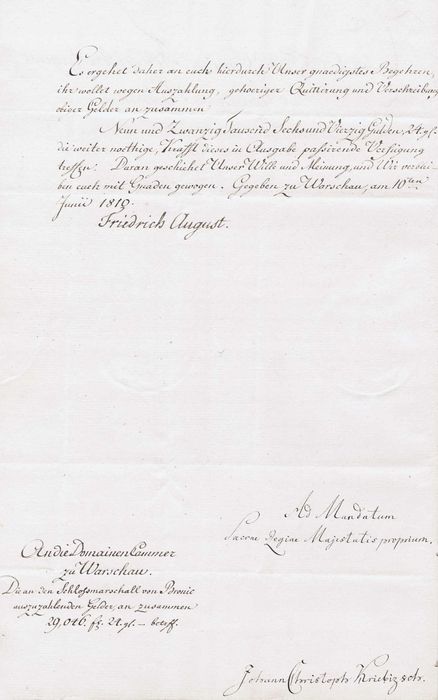 Es ergehet daher an euch hierdurch Unser gnaedigstes Begehren,
ihr wollet wegen Auszahlung, gehoeriger Quittirung und Verschreibung
obiger Gelder an zusammen
Neun und Zwanzig Tausend Sechs und Vierzig Gulden, 24. gl.
die weiter noethige, Krafft dieses in Ausgabe passirende Verfügung
treffen. Daran geschiehet Unser Wille und Meinung, und Wir verblei-
ben euch mit Gnaden gewogen. Gegeben zu Warschau, am 10ten
Junii 1810.
Friedrich August.
Ad Mandatum
Sacrae Regiae Majestatis proprium.
An die Domainen Cammer
zu Warschau.
Die an den Schlossmarschall von Bronic
auszuzahlenden Gelder, an zusammen
29,046. fl. 24. gl. — betreff.
Johann Christoph